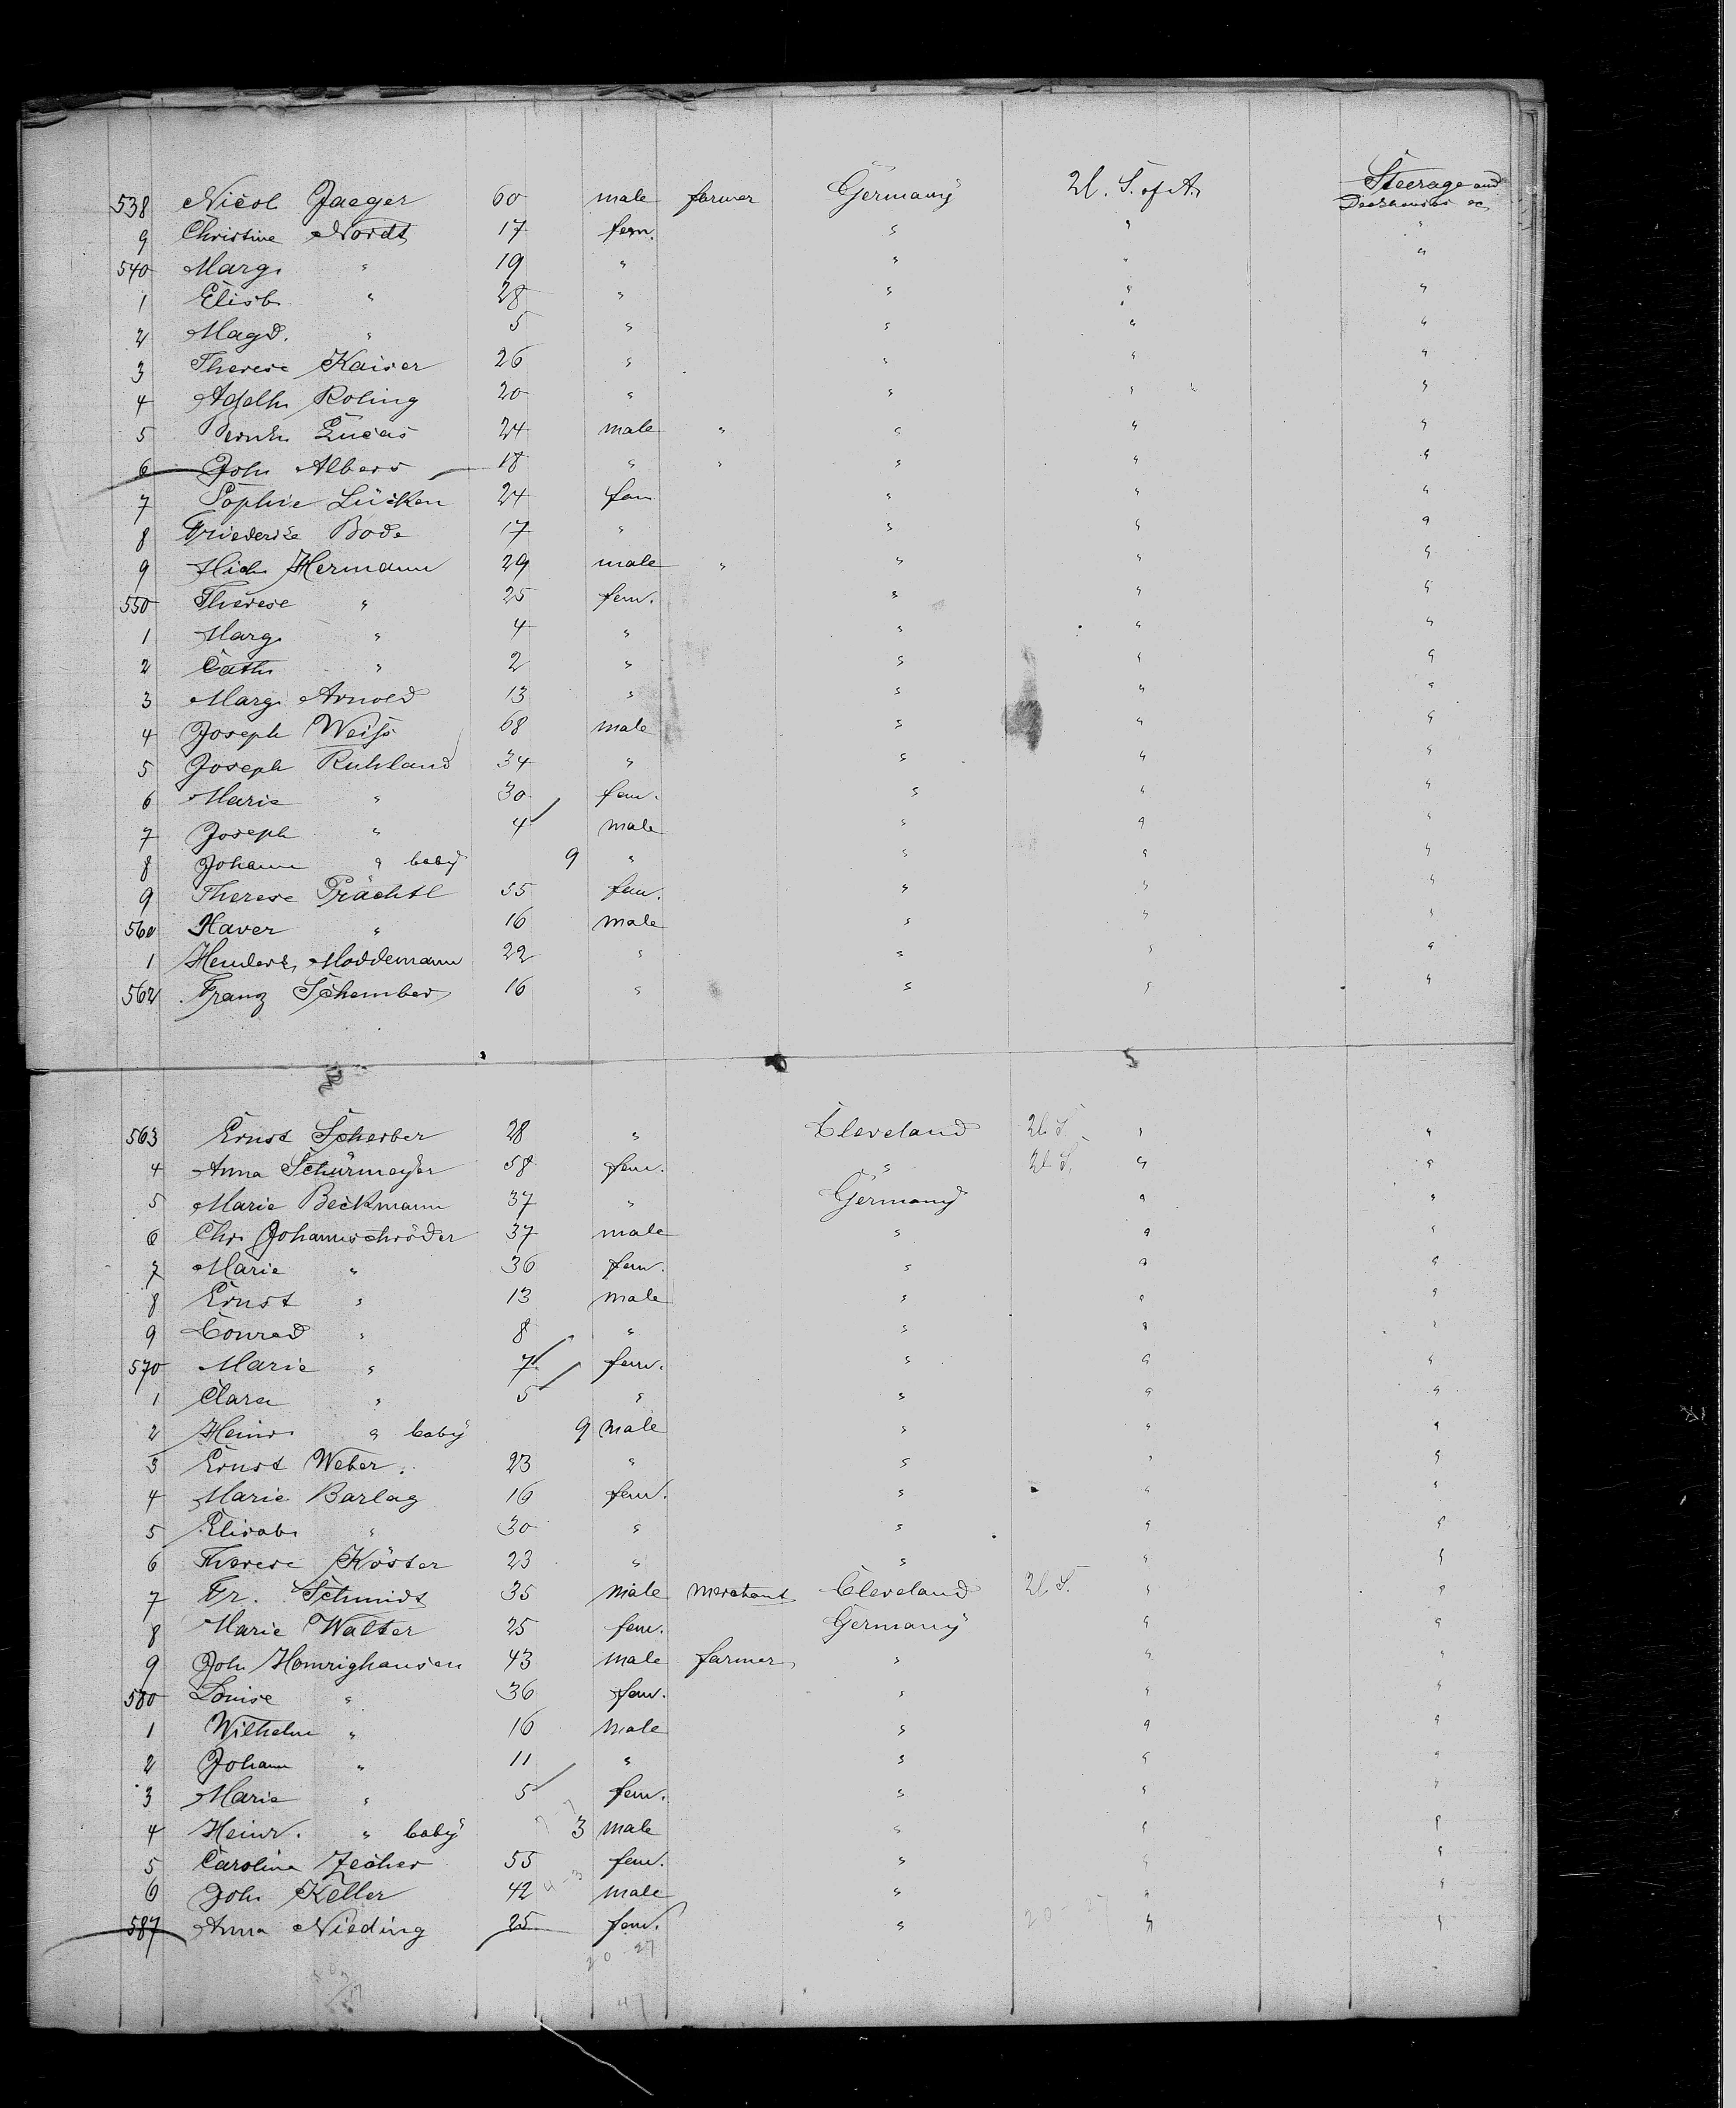 538 Nicol Jaeger 60 male farmer Germany U. S. of A. Steerage and
9 Christine Nordt 17 fem. " " "
540 Marg. " 19 " " " "
1 Elisb. " 28 " " " "
2 Magd. " 5 " " " "
3 Therese Kaiser 26 " " " "
4 Adelh. Roling 20 " " " "
5 Bernh. Lucas 24 male " " " "
6 Joh. Albers 18 " " " " "
7 Sophie Lücken 24 fem " " "
8 Friederike Bode 17 " " " "
9 Hermann 29 male " " " "
550 Therese " 25 fem. " " "
1 Marg. " 4 " " " "
2 Cath. " 2 " " " "
3 Marg. Arnold 13 " " " "
4 Joseph Weiss 68 male " " "
5 Joseph Ruhland 34 " " " "
6 Marie " 30 fem. " " "
7 Joseph " 4 male " " "
8 Johann " baby 9 " " " "
9 Therese Prächtl 55 fem. " " "
560 Xaver " 16 male " " "
1 Moddemann 22 " " " "
562 Franz Schember 16 " " " "
563 Ernst Scherber 28 " Cleveland U. S. " "
4 Anna Schürmeyer 58 fem. " U. S. " "
5 Marie Beckmann 37 " Germany " "
6 Chr. Johannschröder 37 male " " "
7 Marie " 36 fem. " " "
8 Ernst " 13 male " " "
9 Conrad " 8 " " " "
570 Marie " 7 fem. " " "
1 Clara " 5 " " " "
2 Heinr. " baby 9 male " " "
3 Ernst Weber. 23 " " " "
4 Marie Barlag 16 fem. " " "
5 Elisab. " 30 " " " "
6 Therese Köster 23 " " " "
7 Fr. Schmidt 35 male merchant Cleveland U. S. " "
8 Marie Walter 25 fem. Germany " "
9 Joh. Homrighausen 43 male farmer " " "
580 Louise " 36 fem. " " "
1 Wilhelm " 16 male " " "
2 Johann " 11 " " " "
3 Marie " 5 fem. " " "
4 Heinr. " baby 3 male " " "
5 Caroline Zecher 55 fem. " " "
6 Joh. Keller 42 male " " "
587 Anna Nieding 25 fem. " " "
20 27